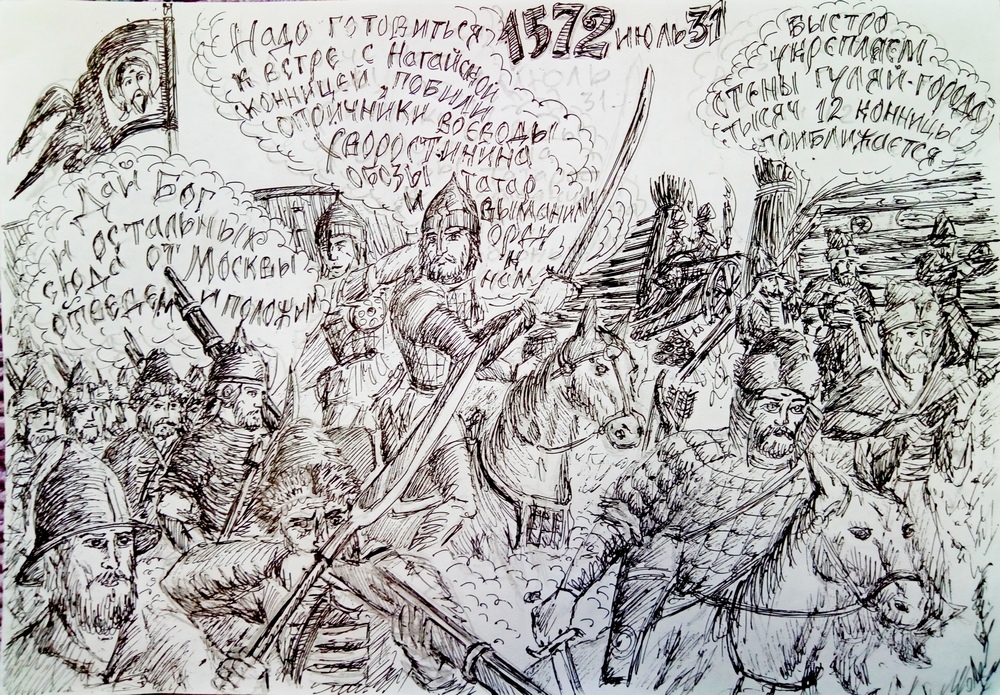 1572 июль 31
Надо готовиться
к встре с Нагайской
конницей, побили
опричники воеводы
Хворостинина
обозы татар
и выманим
орду
к
нам
Быстро
укрепляем
стены гуляй-города
тысяч 12 конницы
приближается
Дай Бог
и остальных
сюда от Москвы
отведем и положим